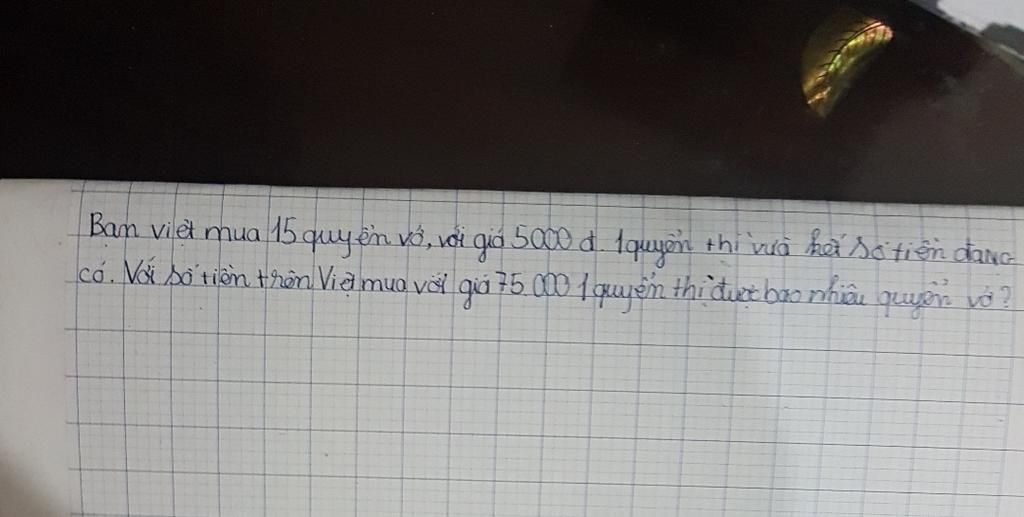 Bạn việt mua 15 quyển vở, với giá 5000 đ 1 quyển thì vừa hết số tiền đang
có. Với số tiền trên Việt mua với giá 75.000 1 quyển thì được bao nhiêu quyển vở?